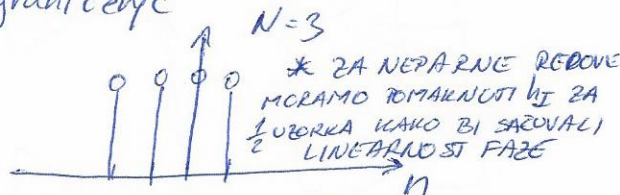 graničenje
N=3
* ZA NEPARNE REDOVE
MORAMO POMAKNUTI hI ZA
1/2 UZORKA KAKO BI SAČUVALI
LINEARNOST FAZE
n